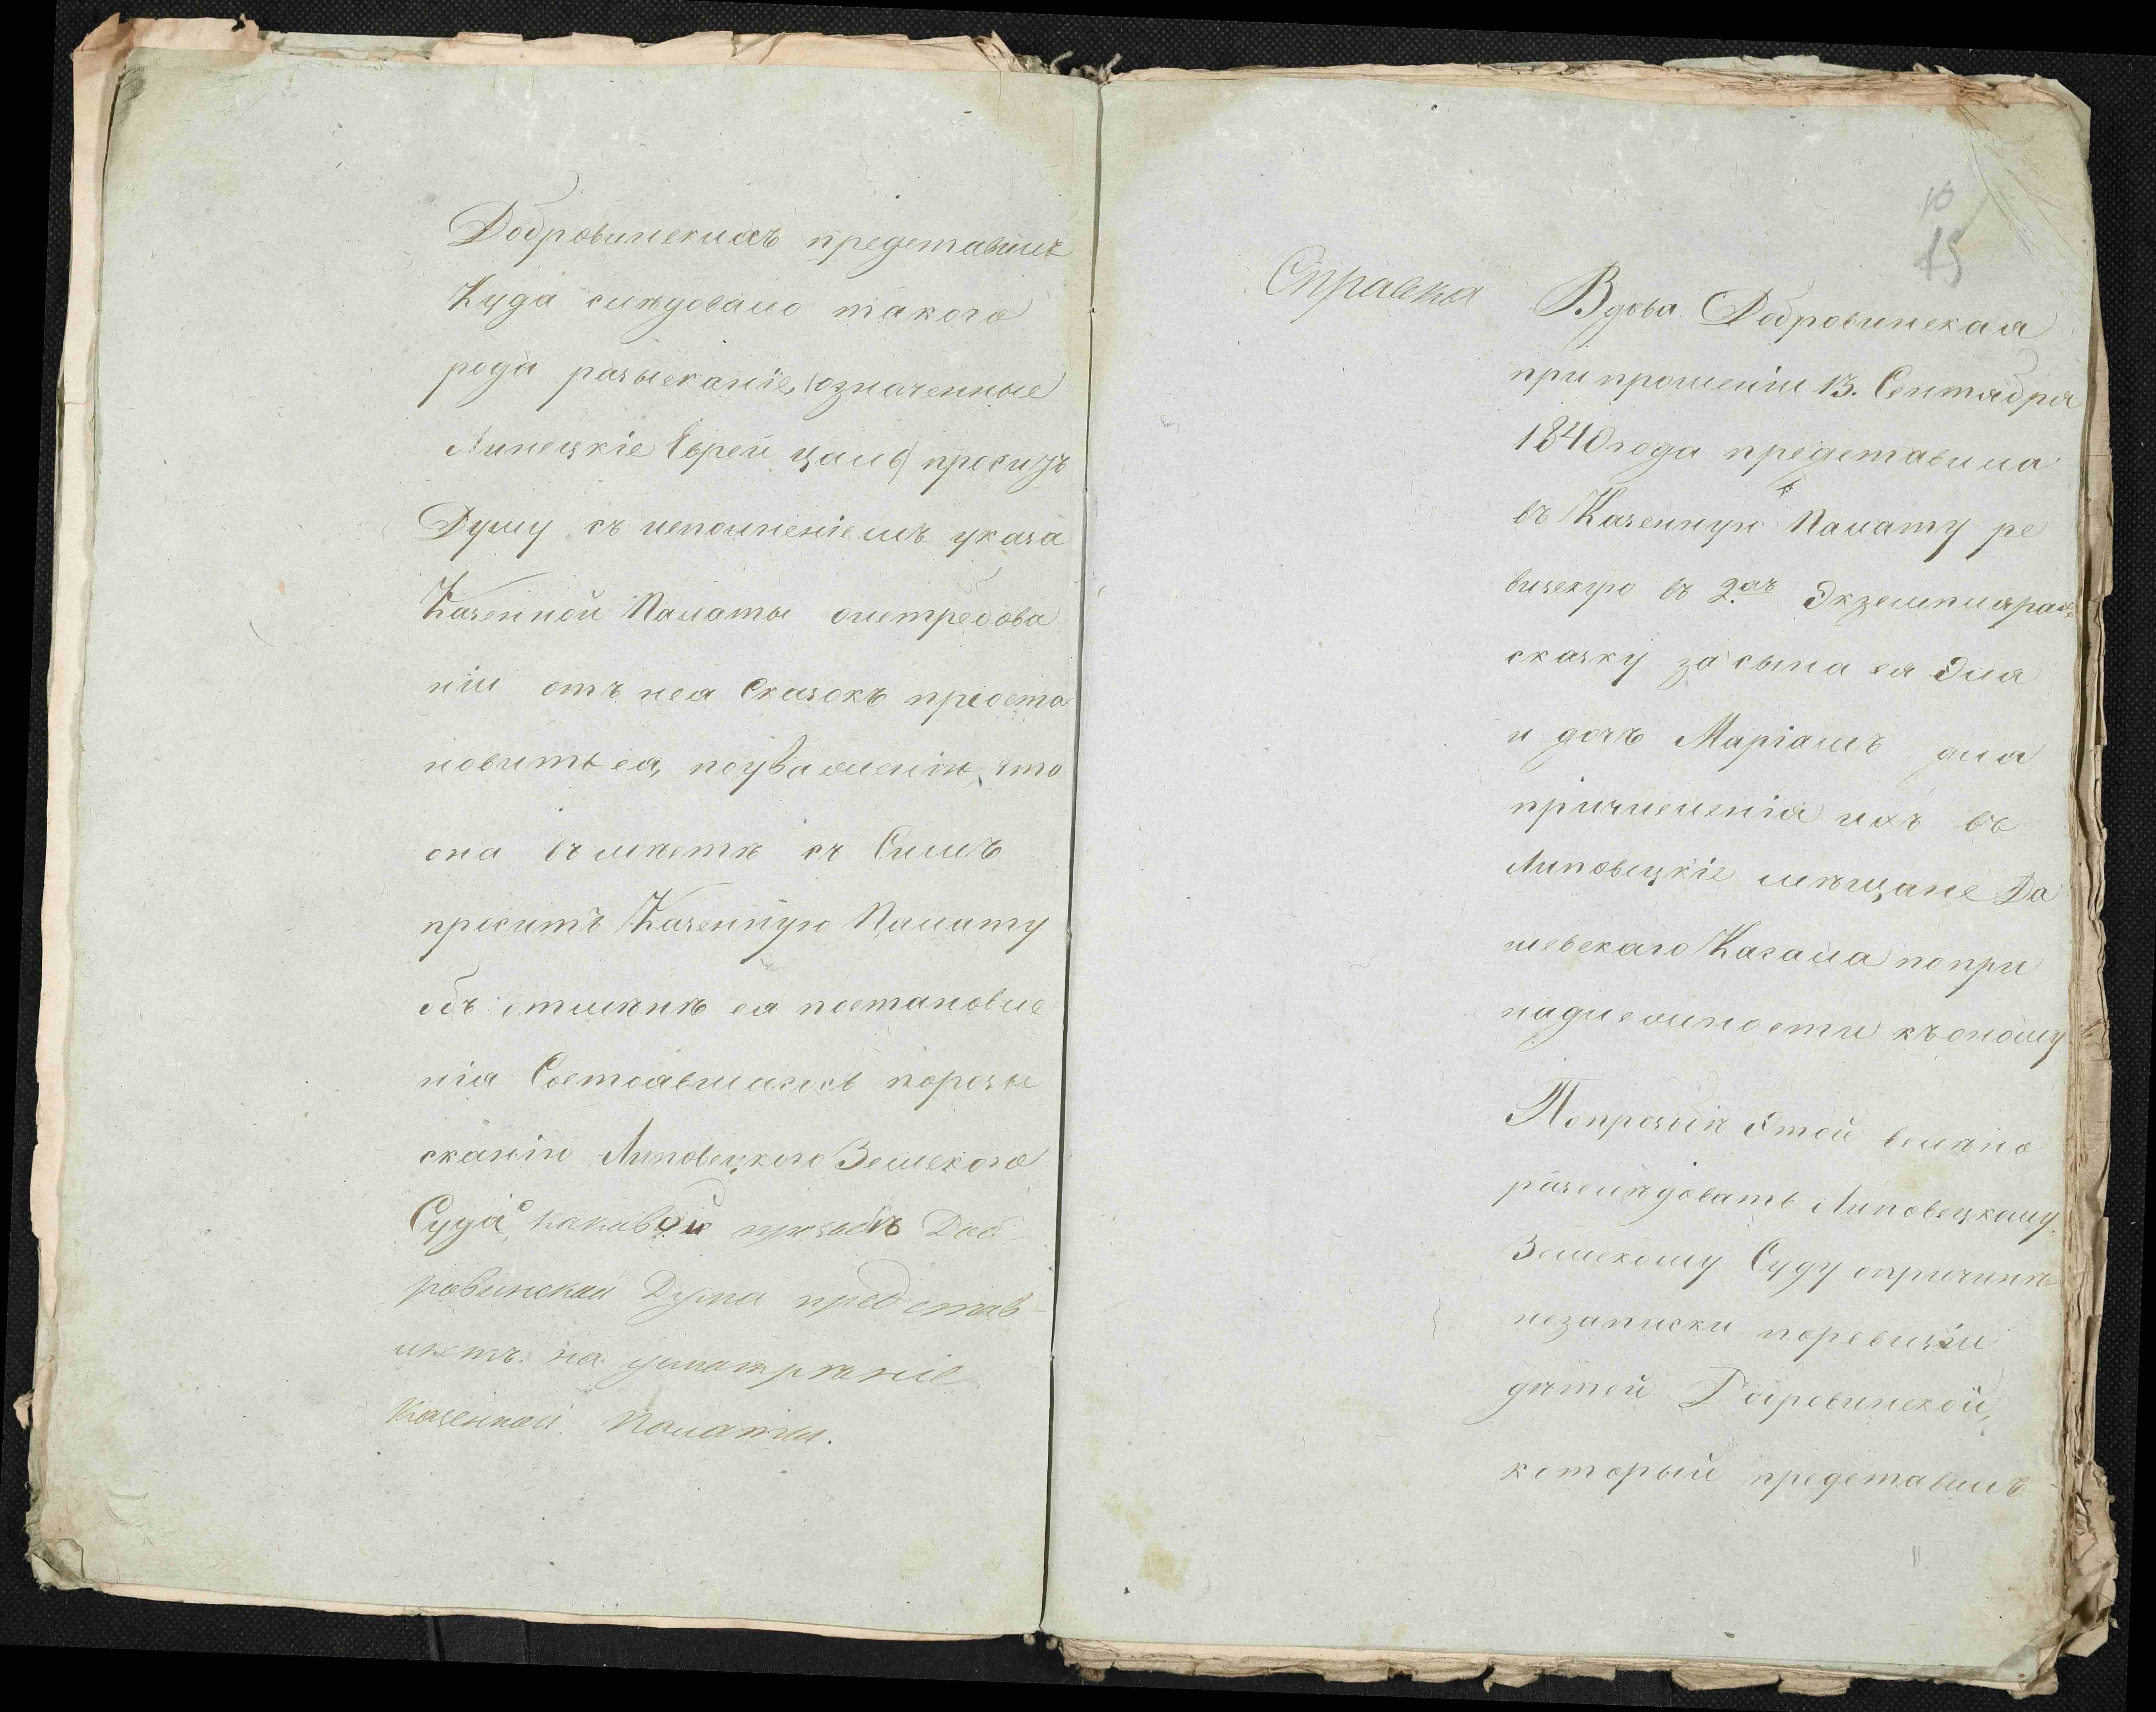 Добровинскихъ представилъ
Куда слѣдовало такого
рода разысканіе, означенные
Липецкіе Евреи проситъ
Думу съ исполненіемъ указа
Казенной Палаты о истребова
ніи отъ нея Сказокъ пріоста
новиться, по уваженію, что
она вѣ мѣстѣ съ Симъ
проситъ Казенную Палату
объ отмѣнѣ ея постановле
нія Состоявшагось по розы
сканію Липовецкого Земского
Суда каковой прозьбѣ Доб-
ровинской Дума представ-
ляетъ на усмотрѣніе
Казенной Палаты.
10
15
Справка
Вдова Добровинская
при прошеніи 13. Сентября
1840 года представила
въ Казенную Палату ре
визскую въ 2хъ Экземплярахъ
сказку за сына ея Эля
и дочь Маріамъ для
причисленія ихъ въ
Липовецкіе мѣщане Да
шевскаго Кагала по при
надлежности къ оному
По прозьбѣ Этой велѣно
разслѣдовать Липовецкому
Земскому Суду о причинѣ
незаписки по ревизіи
дѣтей Добровинской,
который представилъ